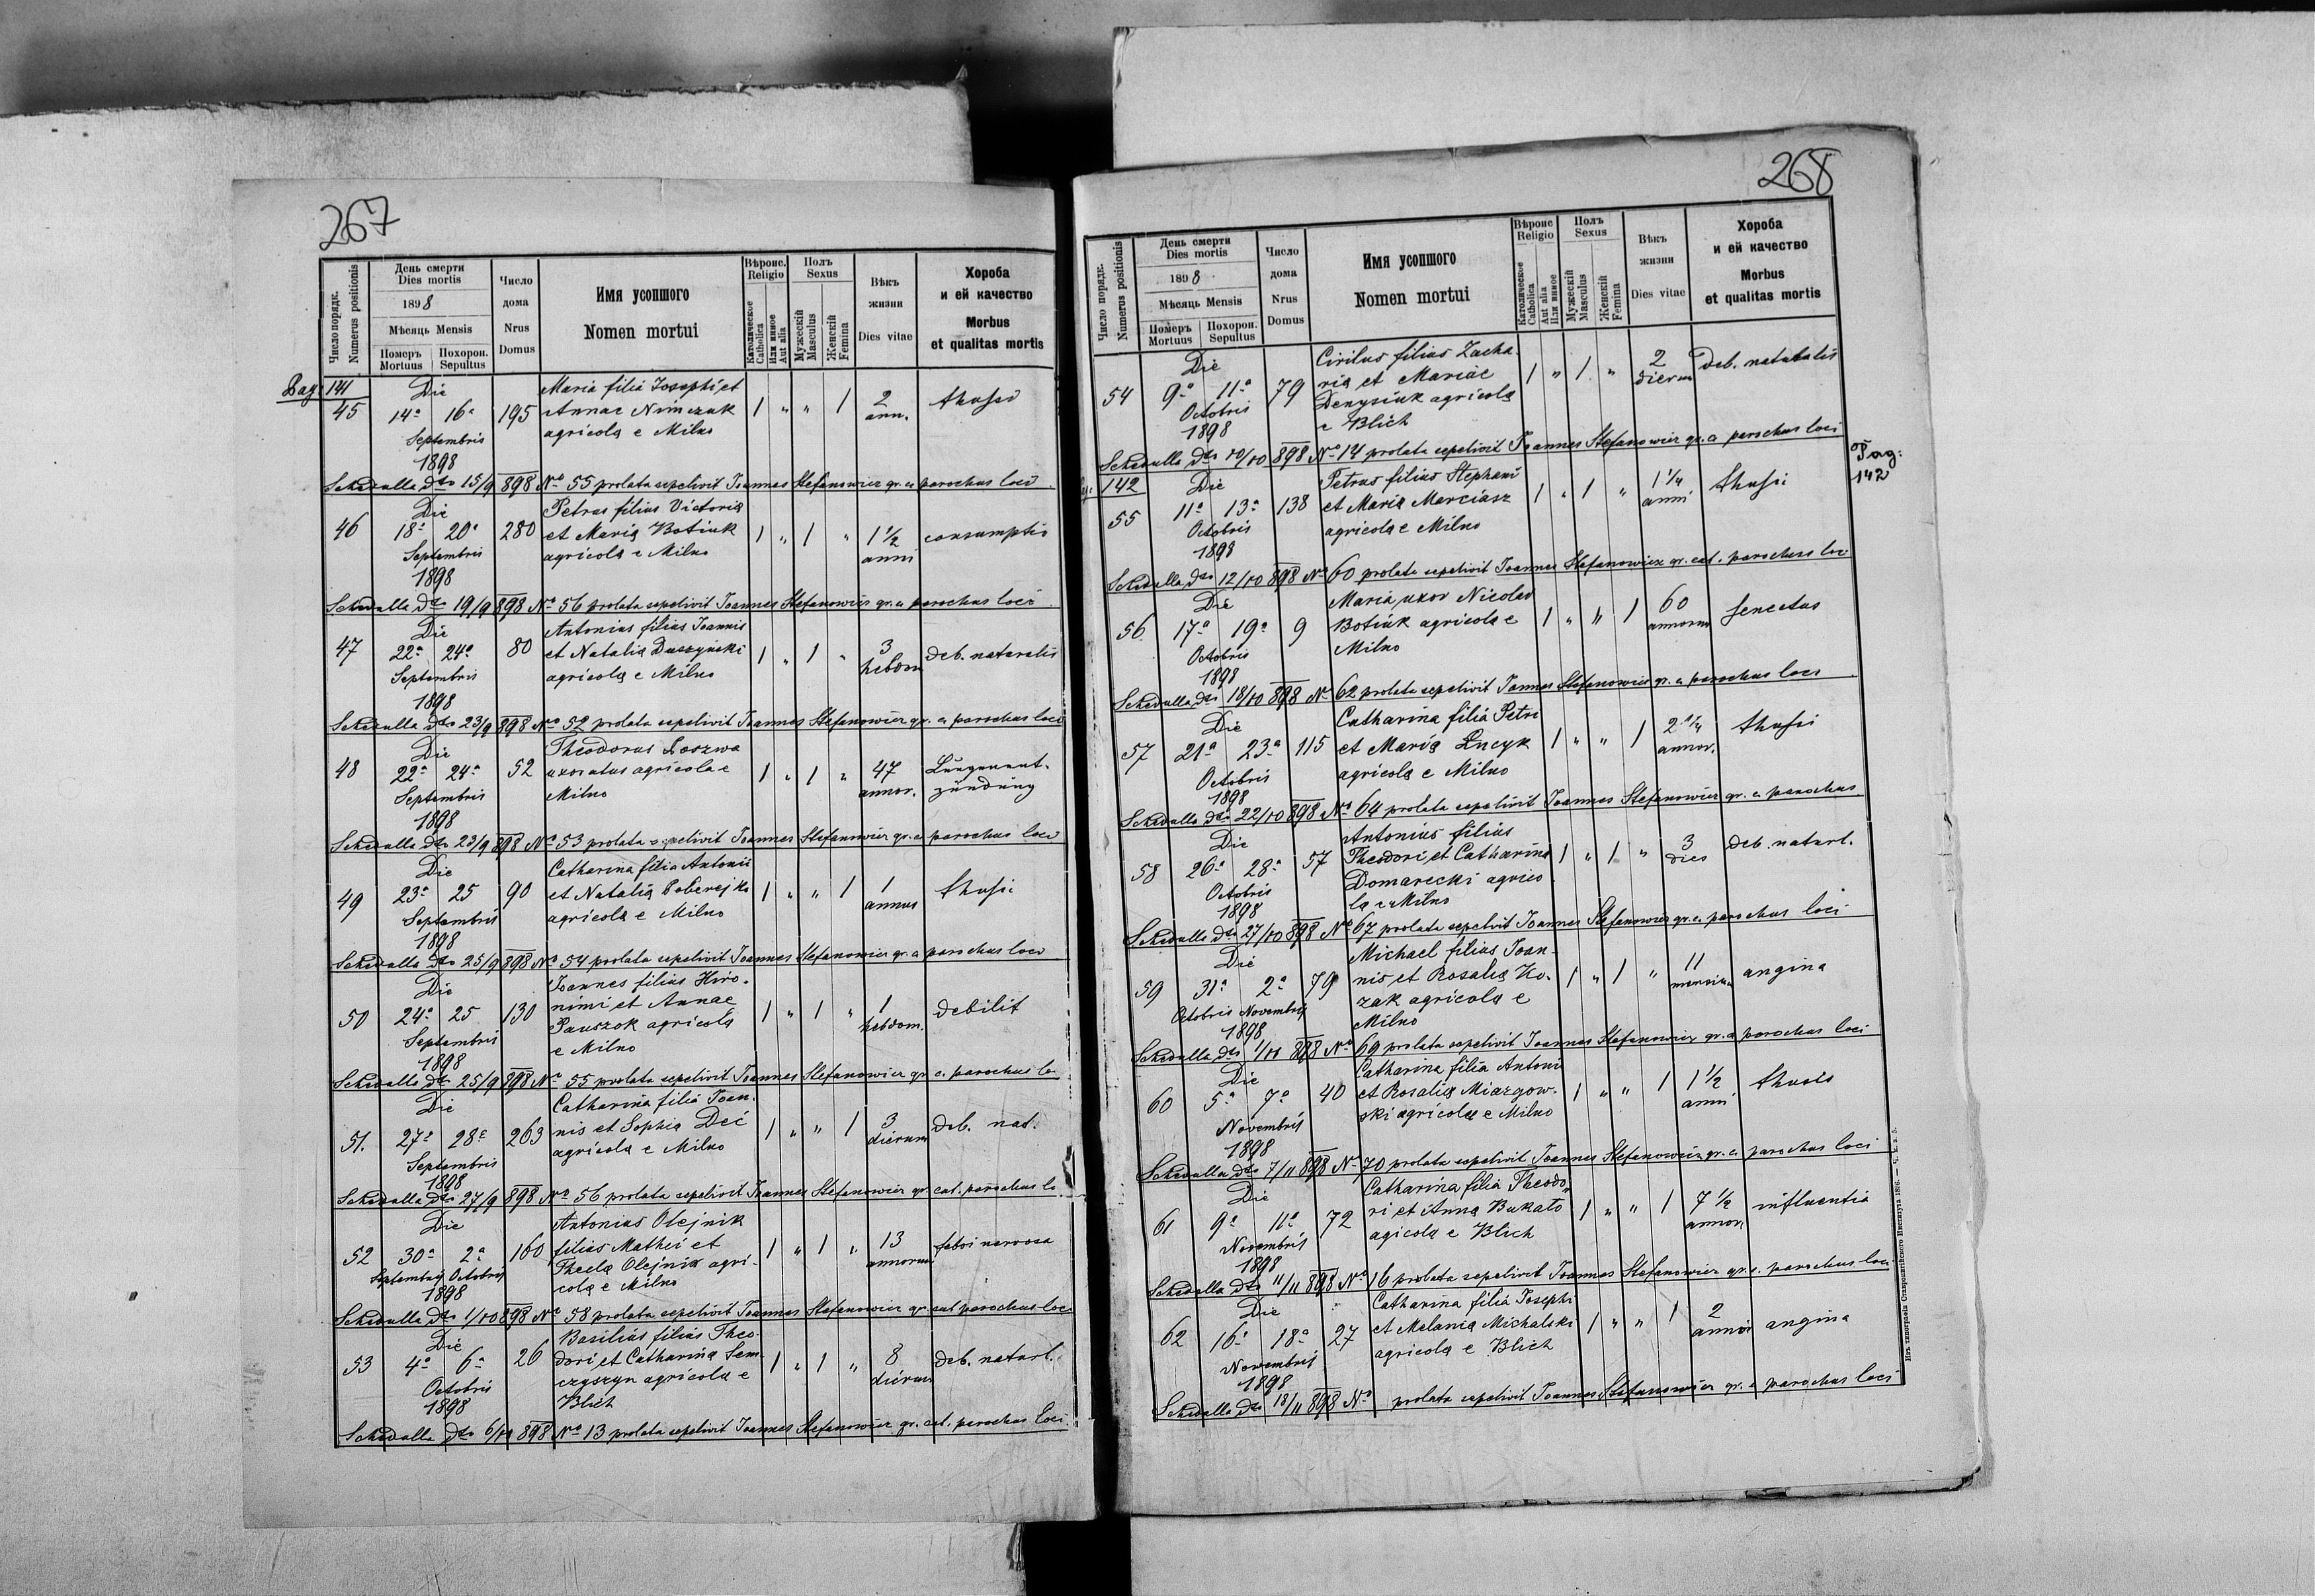 267
Число порядк.
Numerus positionis
День смерти
Dies mortis
1898
Мѣсяць Mensis
Померъ
Mortuus
Похорон.
Sepultus
Число
дома
Nrus
Domus
Имя усопшого
Nomen mortui
Вѣроис.
Religio
Католическое
Catholica
Или инное
Aut alia
Полъ
Sexus
Мужескій
Masculus
Женскій
Femina
Вѣкъ
жизни
Dies vitae
Хороба
и ей качество
Morbus
et qualitas mortis
Pag. 141
Die
45 14a 16a 195 Maria filia Josephi et
Annae Nimczuk 1 " " 1 2 thusis
agricola e Milno ann.
Septembris
1898
Schedulla dto 15/9 898 No 55 prolata sepelivit Joannes Stefanowicz gr. c. parochus loci
Die
46 18a 20a 280 Petrus filius Victoria
et Maria Botiuk 1 " 1 " 1 1/2 consumptio
agricola e Milno anni
Septembris
1898
Schedulla dto 19/9 898 No 56 prolata sepelivit Joannes Stefanowicz gr. c. parochus loci
Die
47 22a 24a 80 Antonius filius Joannis
et Natalia Duszynski 1 " 1 " 3 deb. naturalis
agricola e Milno hebdom
Septembris
1898
Schedulla dto 23/9 898 No 52 prolata sepelivit Joannes Stefanowicz gr. c. parochus loci
Die
48 22a 24a 52 Theodorus Loszwa
uxoratus agricola e 1 " 1 " 47 Lungenent-
Milno annor. zündung
Septembris
1898
Schedulla dto 23/9 898 No 53 prolata sepelivit Joannes Stefanowicz gr. c. parochus loci
Die
49 23a 25 90 Catharina filia Antonii
et Natalia Poberejko 1 " " 1 1 thusis
agricola e Milno annus
Septembris
1898
Schedulla dto 25/9 898 No 54 prolata sepelivit Joannes Stefanowicz gr. c. parochus loci
Die
50 24a 25 130 Joannes filius Hiro-
nimi et Annae 1 " 1 " 1 debilit
Pauszok agricola hebdom.
e Milno
Septembris
1898
Schedulla dto 25/9 898 No 55 prolata sepelivit Joannes Stefanowicz gr. c. parochus lo
Die
51. 27a 28a 263 Catharina filia Joan-
nis et Sophia Deć 1 " " 1 3 deb. nat.
agricola e Milno dierum
Septembris
1898
Schedulla dto 27/9 898 No 56 prolata sepelivit Joannes Stefanowicz gr. cat. parochus lo
Die
52 30a 2a 160 Antonius Olejnik
filius Mathei et 1 " 1 " 13 febri nervosa
Thecla Olejnik agri- annorum
cola e Milno
Septembris Octobris
1898
Schedulla dto 1/10 898 No 58 prolata sepelivit Joannes Stefanowicz gr. cat parochus loci
Die
53 4a 6a 26 Basilius filius Theo-
dori et Catharina Sem- 1 " 1 " 8 deb. naturl.
czyszyn agricola e dierum
Blich
Octobris
1898
Schedulla dto 6/10 898 No 13 prolata sepelivit Joannes Stefanowicz gr. cat. parochus loci
268
Число порядк.
Numerus positionis
День смерти
Dies mortis
1898
Мѣсяць Mensis
Померъ
Mortuus
Похорон.
Sepultus
Число
дома
Nrus
Domus
Имя усопшого
Nomen mortui
Вѣроис
Religio
Католическое
Catholica
Aut alia
Или инное
Полъ
Sexus
Мужескій
Masculus
Женскій
Femina
Вѣкъ
жизни
Dies vitae
Хороба
и ей качество
Morbus
et qualitas mortis
Die
54 9a 11a 79 Cirilus filius Zacha-
ria et Mariae 1 " 1 " 2 deb. naturalis
Denysiuk agricola dierum
e Blich
Octobris
1898
Schedulla dto 10/10 898 No 14 prolata sepelivit Joannes Stefanowicz gr. c. parochus loci
Pag:
142
142
Die
55 11a 13a 138 Petrus filius Stephani
et Maria Marciasz 1 " 1 " 1 1/4 thusis
agricola e Milno anni
Octobris
1898
Schedulla dto 12/10 898 No 60 prolata sepelivit Joannes Stefanowicz gr. cat. parochus loci
Die
56 17a 19a 9 Maria uxor Nicolai
Botiuk agricola e 1 " " 1 60 senectus
Milno annorum
Octobris
1898
Schedulla dto 18/10 898 No 62 prolata sepelivit Joannes Stefanowicz gr. c. parochus loci
Die
57 21a 23a 115 Catharina filia Petri
et Maria Łucyk 1 " " 1 2 1/4 thusis
agricola e Milno annor.
Octobris
1898
Schedulla dto 22/10 898 No 64 prolata sepelivit Joannes Stefanowicz gr. c. parochus
Die
58 26a 28a 57 Antonius filius
Theodori et Catharina 1 " 1 " 3 deb. naturl.
Domarecki agrico dies
la e Milno
Octobris
1898
Schedulla dto 27/10 898 No 67 prolata sepelivit Joannes Stefanowicz gr. c. parochus loci
Die
59 31a 2a 79 Michael filius Joan-
nis et Rosalia Ko- 1 " 1 " 11 angina
zak agricola e mensium
Milno
Octobris Novembris
1898
Schedulla dto 1/11 898 No 69 prolata sepelivit Joannes Stefanowicz gr. c. parochus loci
Die
60 5a 7a 40 Catharina filia Antoni
et Rosalia Miazgow- 1 " " 1 1 1/2 thusis
ski agricola e Milno anni
Novembris
1898
Schedulla dto 7/11 898 No 70 prolata sepelivit Joannes Stefanowicz gr. c. parochus loci
Die
61 9a 11a 72 Catharina filia Theodo-
ri et Anna Bukato 1 " " 1 7 1/2 influentia
agicola e Blich annor.
Novembris
1898
Schedulla dto 11/11 898 No 16 prolata sepelivit Joannes Stefanowicz gr. c. parochus loci
Die
62 16a 18a 27 Catharina filia Josephi
et Melania Michalski 1 " " 1 2 angina
agricola e Blich annor
Novembris
1898
Schedulla dto 18/11 898 No prolata sepelivit Joannes Stefanowicz gr. c. parochus loci
Изъ типографіи Ставропигійского Института 1896.